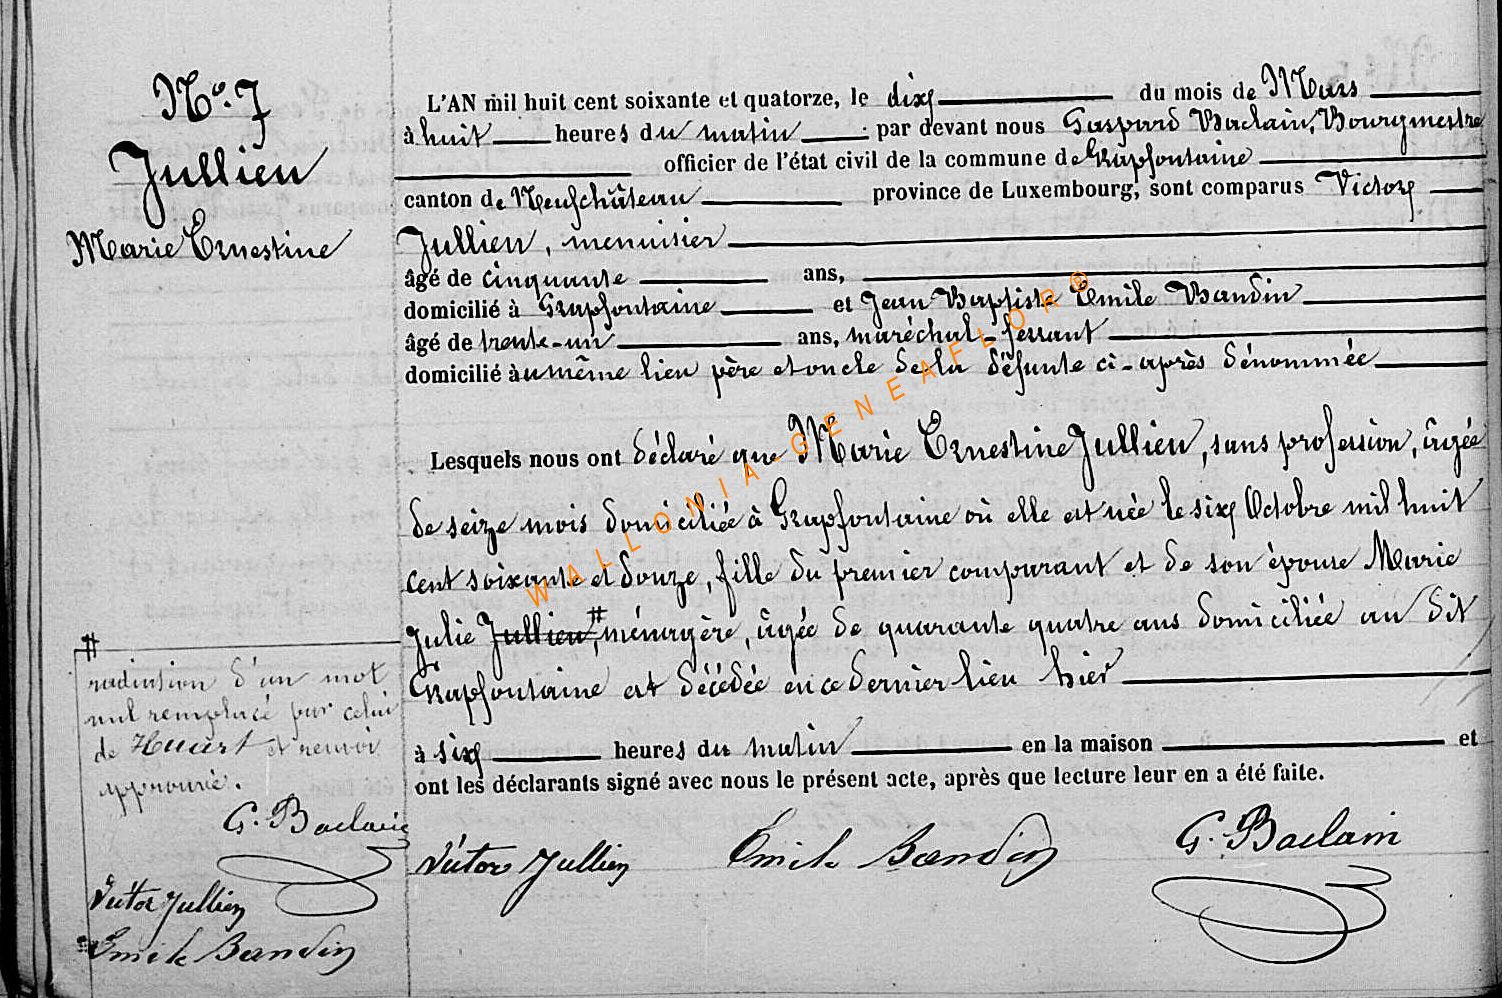 No. 7
Jullien
Marie Ernestine
L'AN mil huit cent soixante et quatorze, le dix du mois de Mars
à huit heures du matin par devant nous Gaspard Baclain, Bourgmestre
officier de l'état civil de la commune de Grapfontaine
canton de Neufchâteau province de Luxembourg, sont comparus Victor
Jullien, menuisier
âgé de cinquante ans,
domicilié à Grapfontaine et Jean Baptiste Emile Baudin
âgé de trente-un ans, maréchal-ferrant
domicilié au même lieu père et oncle de la défunte ci-après dénommée
Lesquels nous ont déclaré que Marie Ernestine Jullien, sans profession, âgée
de seize mois domiciliée à Grapfontaine où elle est née le six Octobre mil huit
cent soixante et douze, fille du premier comparant et de son épouse Marie
Julie Jullien, # ménagère, âgée de quarante quatre ans domiciliée au dit
Grapfontaine est décédée en ce dernier lieu hier
à six heures du matin en la maison et
ont les déclarants signé avec nous le présent acte, après que lecture leur en a été faite.
Victor Jullien Emile Baudin G. Baclain
#
radiation d'un mot
nul remplacé par celui
de Huart et renvoi
approuvé.
G. Baclain
Victor Jullien
Emile Baudin
WALLONIA-GENEAFLOR®